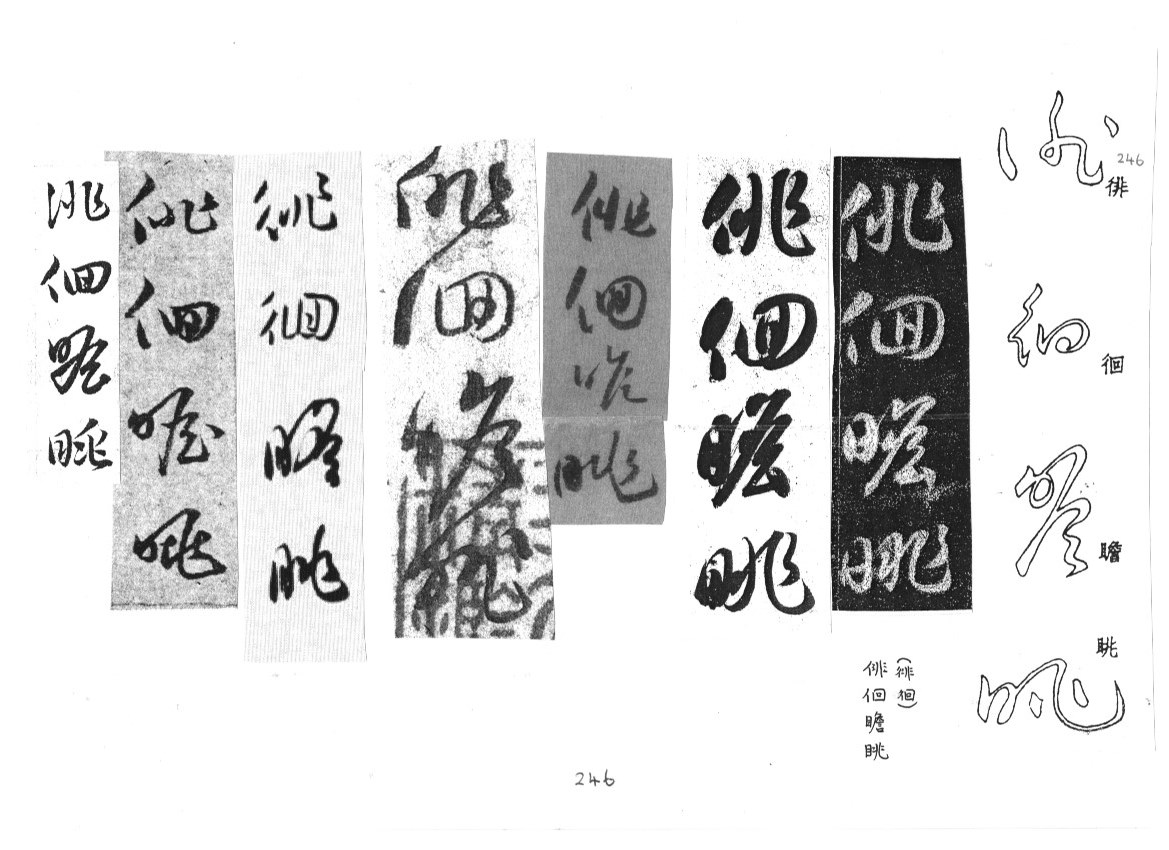 246
徘徊瞻眺
徘徊瞻眺
(徘徊)
俳佪瞻眺
俳佪瞻眺
俳佪瞻眺
俳佪瞻眺
俳佪瞻眺
徘徊瞻眺
俳佪瞻眺
俳佪瞻眺
246